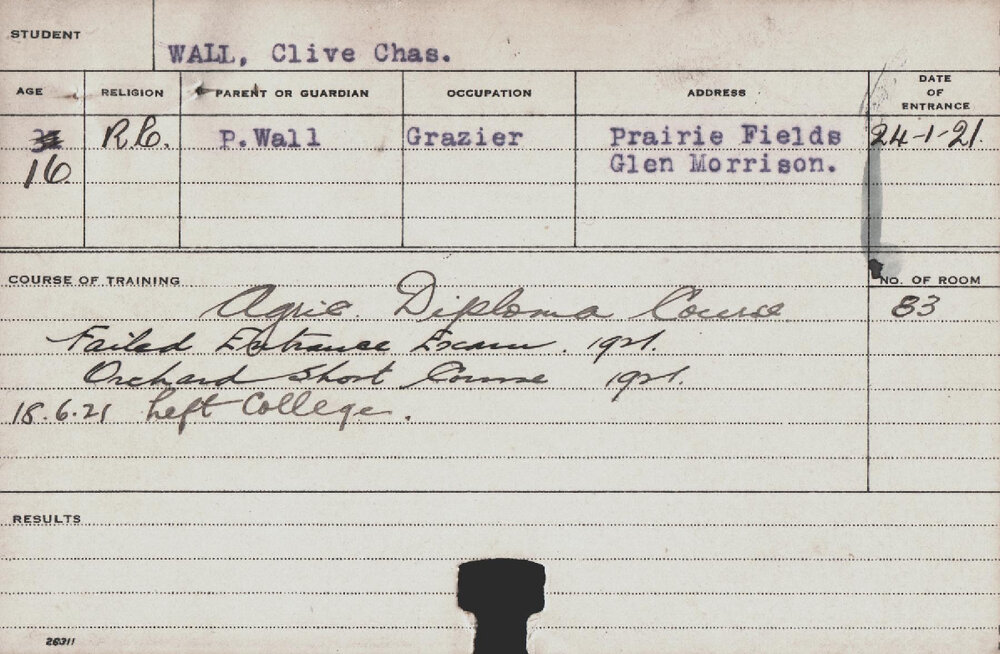 STUDENT
WALL, Clive Chas.
AGE RELIGION PARENT OR GUARDIAN OCCUPATION ADDRESS DATE OF ENTRANCE
R.C. P.Wall Grazier Prairie Fields 24-1-21.
16. Glen Morrison.
COURSE OF TRAINING NO. OF ROOM
Agric. Diploma Course 83
Failed Entrance Exam. 1921.
Orchard Short Course 1921.
18.6.21 Left College.
RESULTS
26311